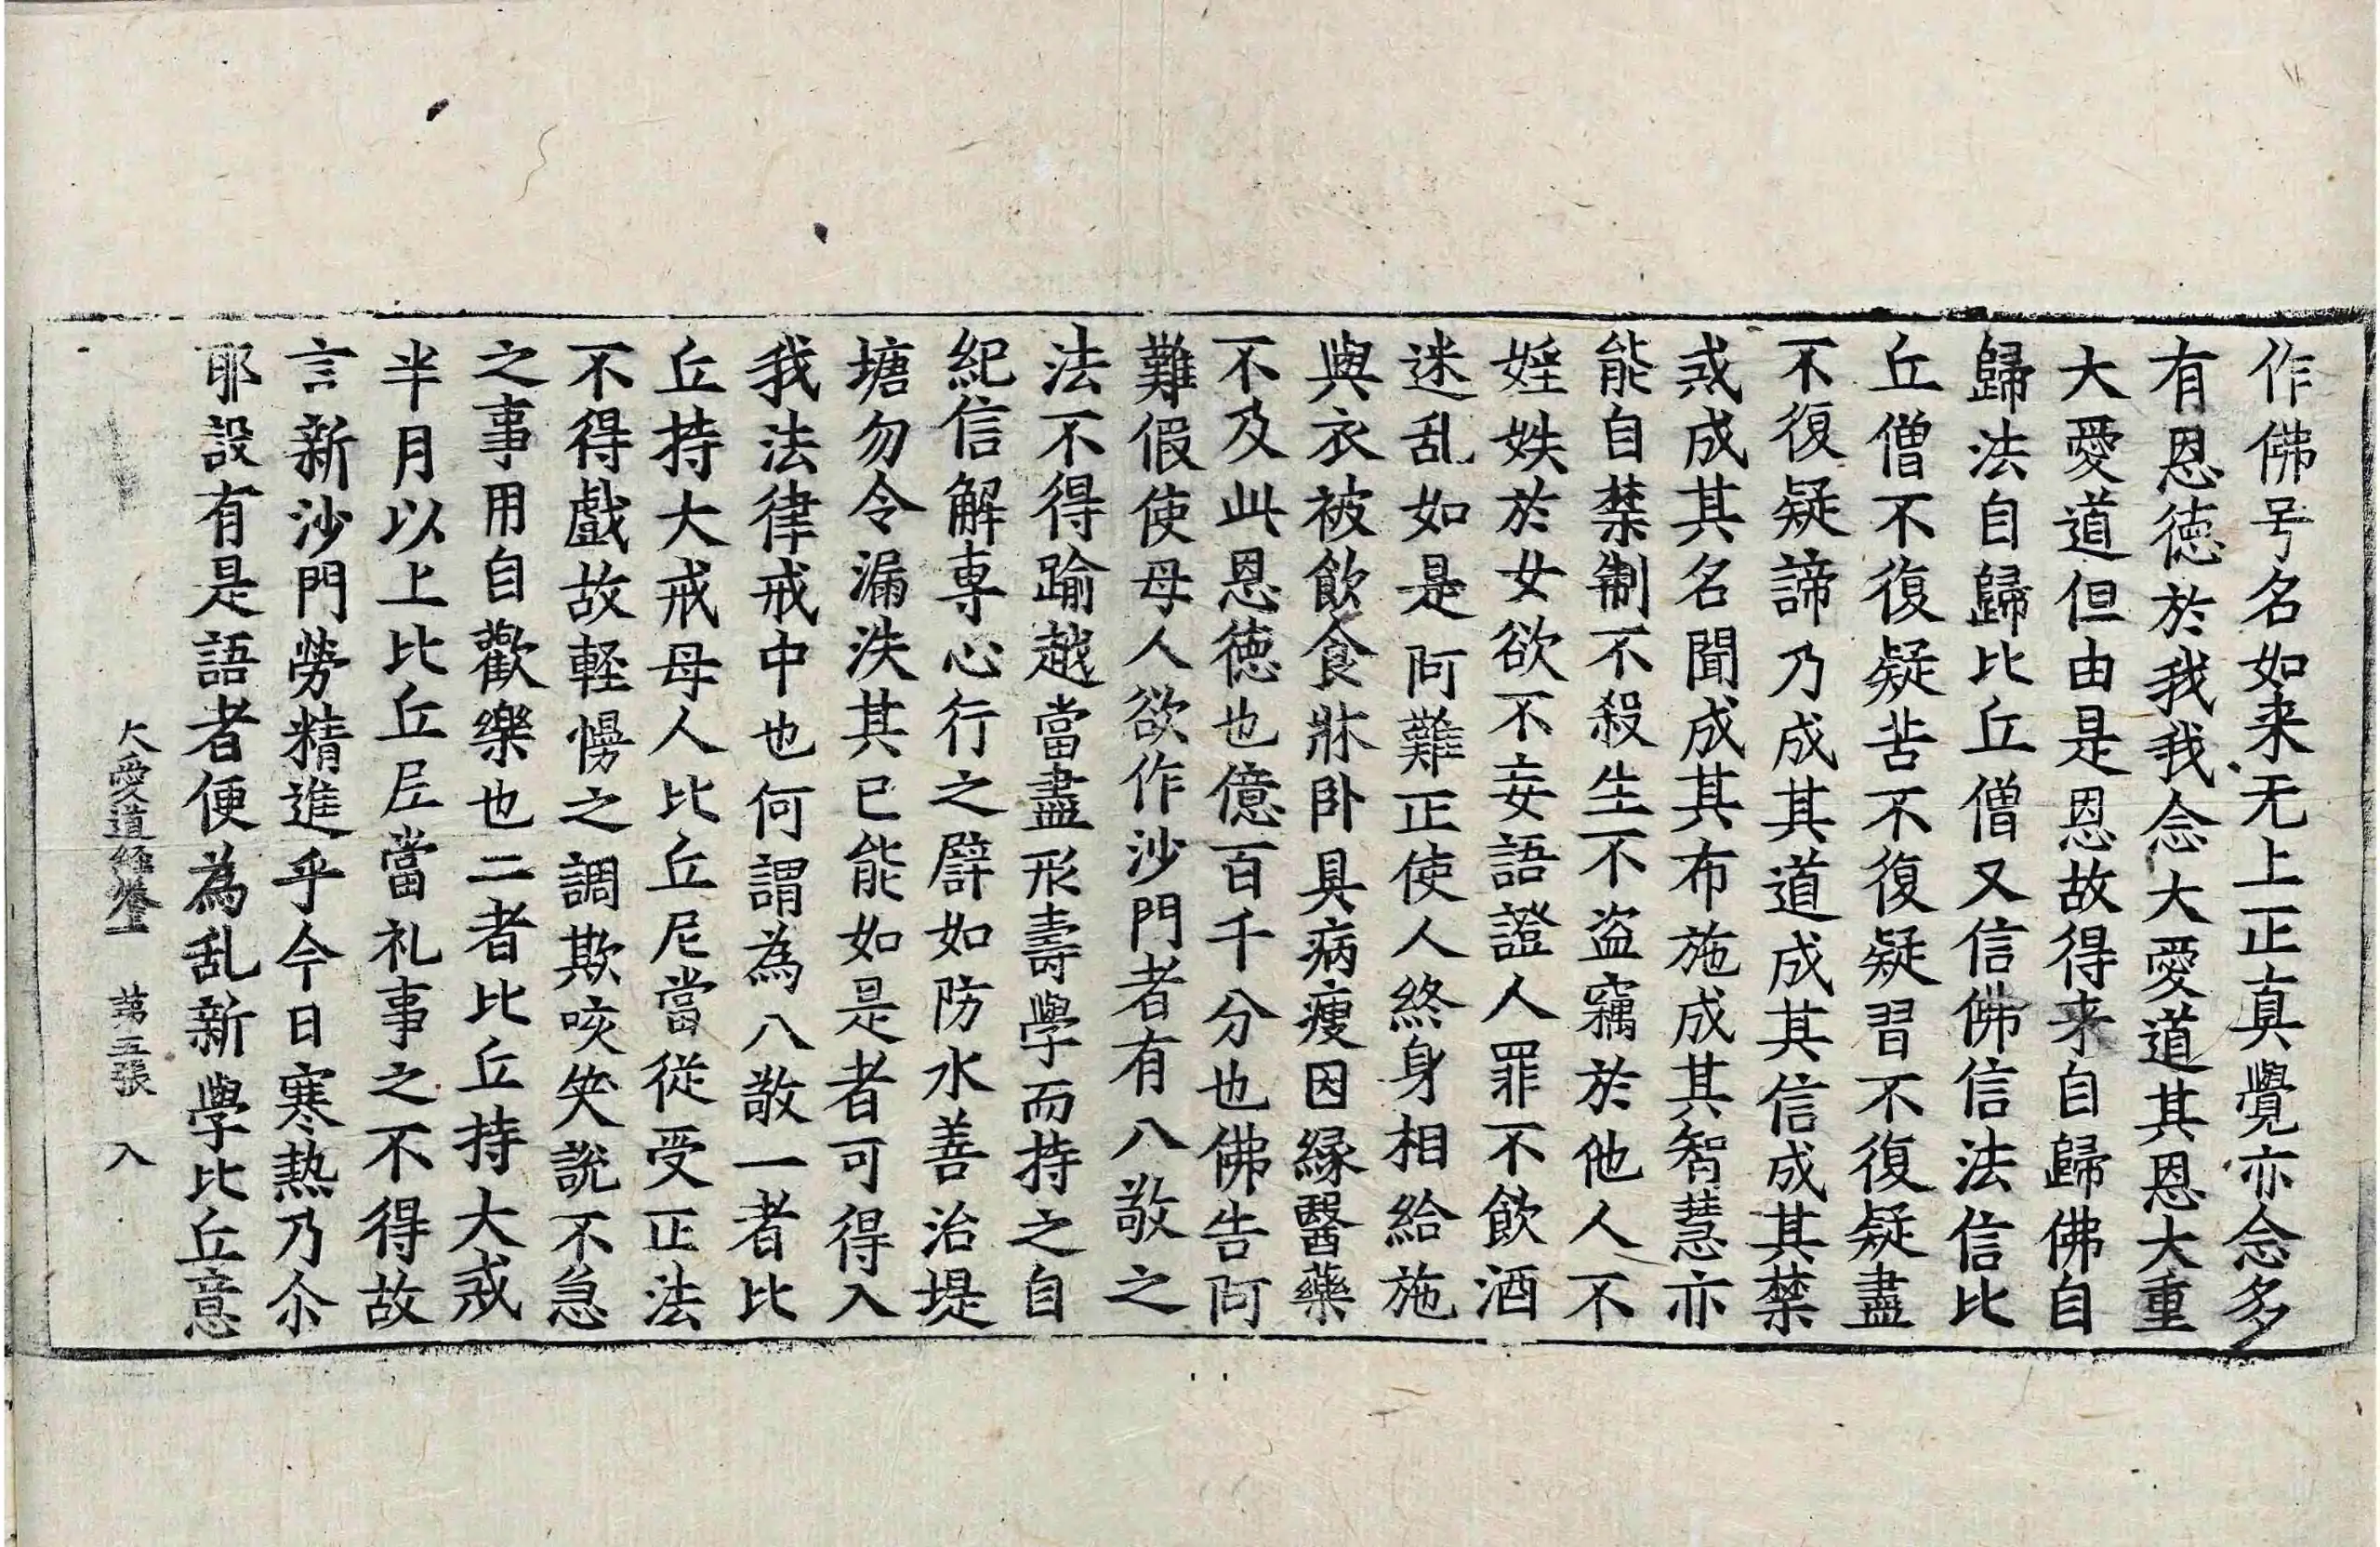 作佛号名如来无上正真覺亦念多
有恩徳於我我念大愛道其恩大重
大愛道但由是恩故得来自歸佛自
歸法自歸比丘僧又信佛信法信比
丘僧不復疑苦不復疑習不復疑盡
不復疑諦乃成其道成其信成其禁
戒成其名聞成其布施成其智慧亦
能自禁制不殺生不盗竊於他人不
婬妷於女欲不妄語證人罪不飲酒
迷乱如是阿難正使人終身相給施
與衣被飲食牀卧具病瘦因縁醫藥
不及此恩徳也億百千分也佛告阿
難假使母人欲作沙門者有八敬之
法不得踰越當盡形壽學而持之自
紀信解專心行之譬如防水善治堤
塘勿令漏泆其已能如是者可得入
我法律戒中也何謂為八敬一者比
丘持大戒母人比丘尼當從受正法
不得戲故軽慢之調欺咳笑說不急
之事用自歡樂也二者比丘持大戒
半月以上比丘尼當礼事之不得故
言新沙門勞精進乎今日寒熱乃尒
耶設有是語者便為乱新學比丘意
大愛道經卷上 第五張 入